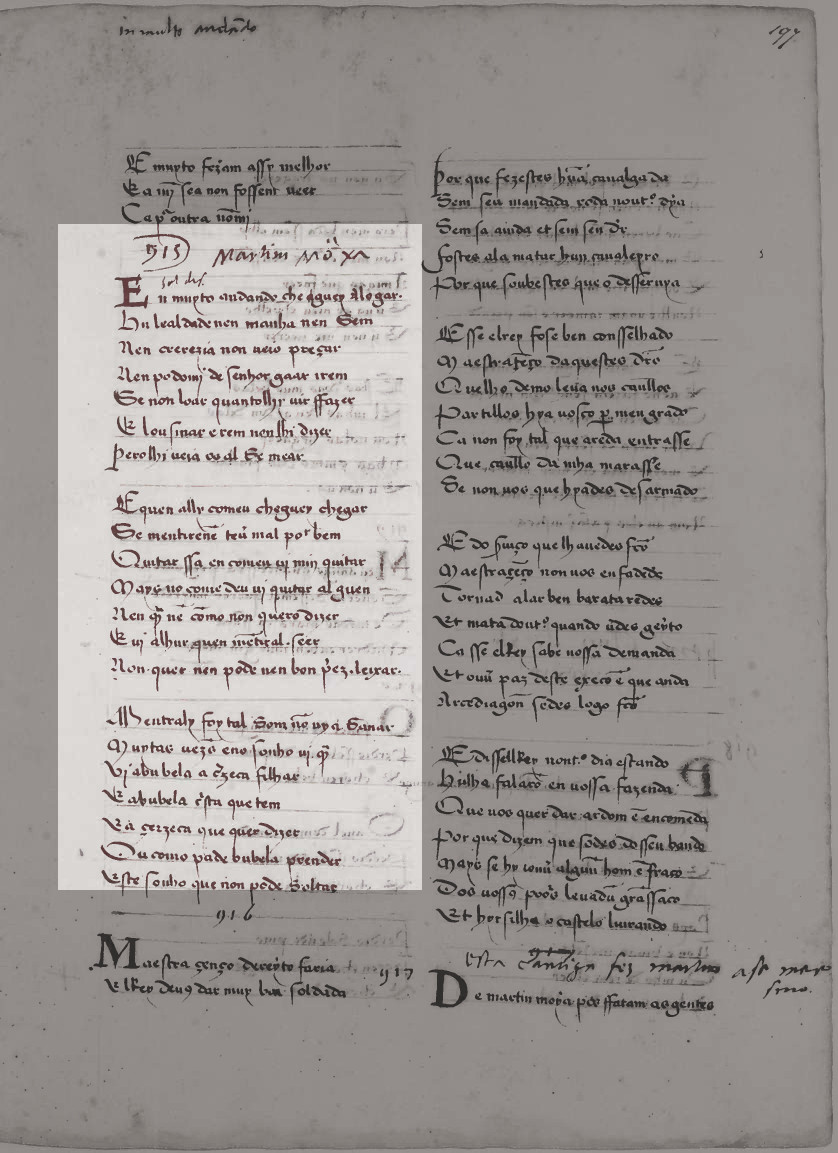 in muito andando
197
E muyto seiam assy melhor
E a mj̃ sea non fossem veer
Ca p̃ outra nomj̃
915 Martim Mõ xa
E n muyto andando che guey a logar
Hu lealdade nen manha nen Sem
Nen crerezia non veio preçar
Nen podomj̃ de senhor gaar irem
Se non loar quantolhy vir ffazer
E lousinar e rem nenlhi dizer
Perolhi veia o al Se mear
E quen alhy comeu cheguey chegar
Se mentir ten mal por bem
Quitar ssa en comeu vj min quitar
Mays no come deu vj quitar alguen
Nen q̃ nẽ cõmo non quero dizer
E vj alhur quen mẽtiral seer
Non quer nen pode nen bon p̃ez leixar
Mentraly foy tal Som nõ vy Sanar
Muytas vezes eno sonho vj q̃
Vj abubela a çerzeca filhar
E abubela esta que tem
E a çerzeca que quer dizer
Ou como pode bubela prender
Este sonho que non pode Soltar
916
Maestra çenço dereyto faria
Elkey deu9 dar muy bõa soldada
917
Por que fezestes hũa caualgada
Sem seu mandado
Sem sa aiuda et sem seu dr
fostes ala matar hun caualeyro
Por que soubestes que o desseruya
E sse elrey fose ben consselhado
Maestraçeço daquestes drõs
Que lho demo leua nos caullos
Partillos hya uosco p̱ meu grado
Ca non foy tal que entrasse
Que caullo da nha matasse
Se non uos que hyades desarmado
E do que lhauedes fco
Maestraçeço non uos enfadede
Tornad alar ben baratarẽdes
Et matad out.º quando ũdes geyto
Ca sse elKey sabe uossa demanda
Et ouu paz deste exeço ẽ que anda
Arcediagon sedes logo fco
E dissellkey nout.º dia estando
Hulha falarõ en uossa fazenda
Que uos quer dar ardom ẽ encomẽda
Por que dizem que sodes do seu bando
Mays se hy ome alguũ hom ẽ fraco
Dos uossos poõs leuadu gra ssaco
Et hyr silha o castelo liurando
esta cantiga fez martim a se mer
sino
De martin moya pos ffatam as gentes